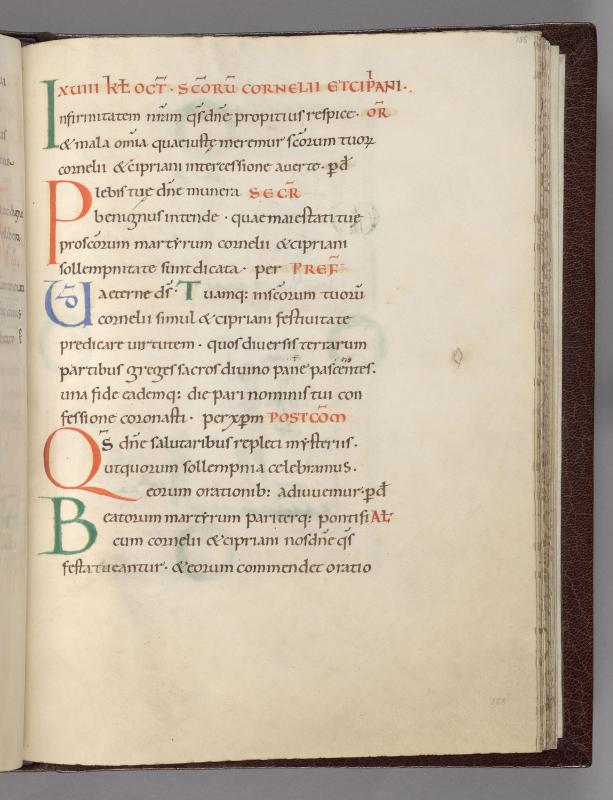 xuiii kł oct̄· scōrū cornelii et cip̄ani·
Infirmitatem nr̄am qs̄ dn̄e propitius respice· or̄
& mala om̄ia quae iustę meremur scōrum tuoꝝ
cornelii & cipriani intercessione auerte· pđ
Plebis tuę dn̄e munera secr̄
benignus intende· quae maiestati tuę
pro scōrum martyrum cornelii & cipriani
sollempnitate sunt dicata· per pref̄
U̅D̅ aeterne ds̄· Tuamq: in scōrum tuorū
cornelii simul & cipriani festiuitate
predicare uirtutem· quos diuersis terrarum
partibus greges sacros diuino pane pascentes·
una fide eademq: die pari nominis tui con
fessione coronasti· per xp̄m postcōm
Qs̄ dn̄e salutaribus repleti mysteriis·
ut quorum sollempnia celebramus·
eorum orationib: adiuuemur· pđ
Beatorum martyrum pariterq: pontifi al̄
cum cornelii & cipriani nos dn̄e qs̄
festa tueantur· & eorum commendet oratio